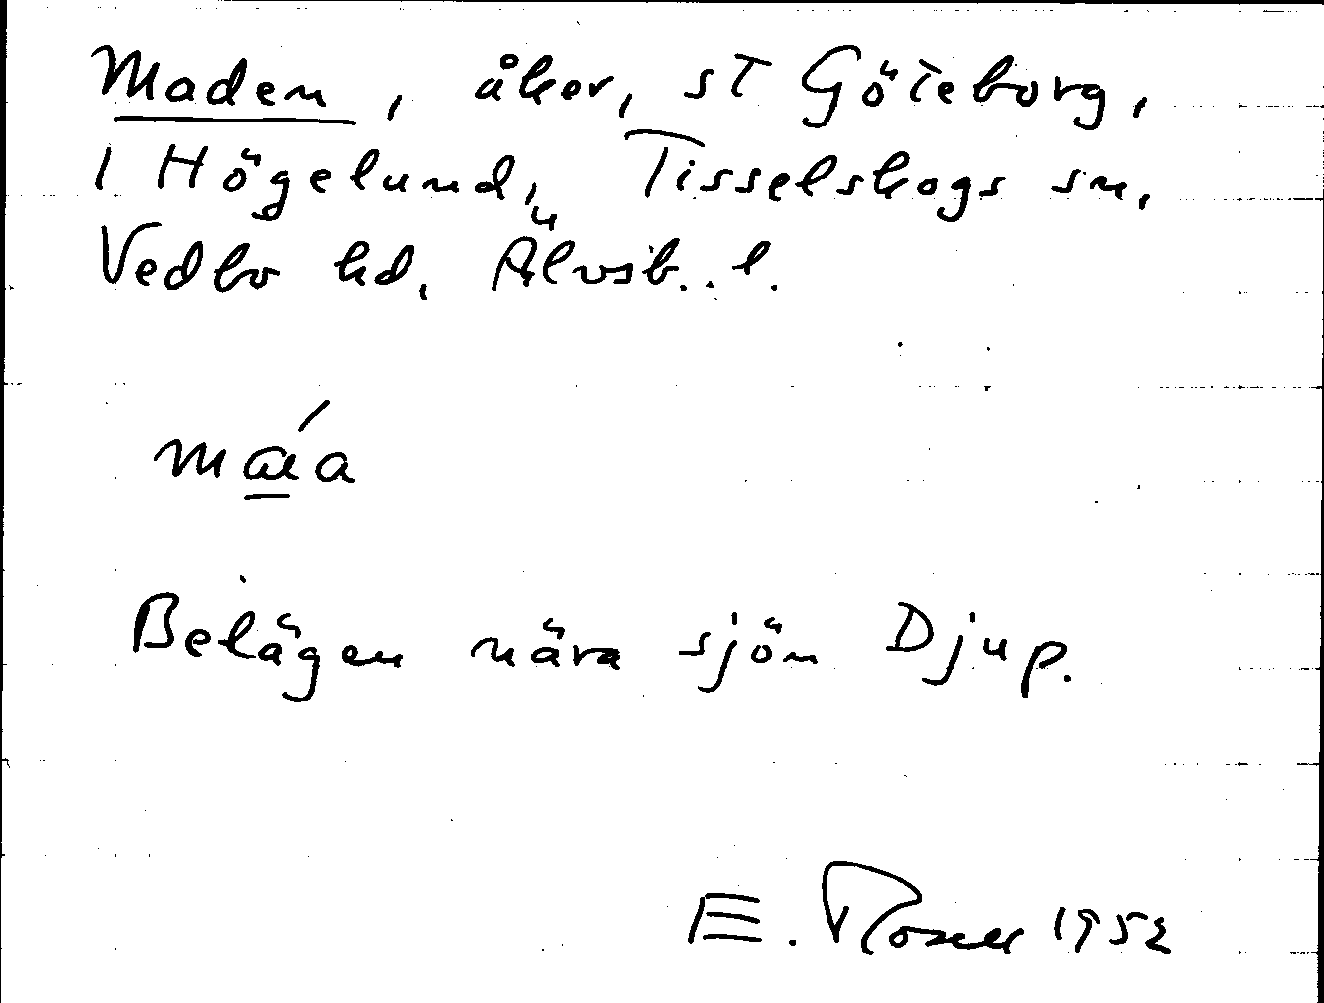 Maden, åker, st Göteborg,
1 Högelund, Tisselskogs sn,
Vedbo hd, Älvsb. l.
ma̲áa
Belägen nära sjön Djup.
E. Rosell 1952